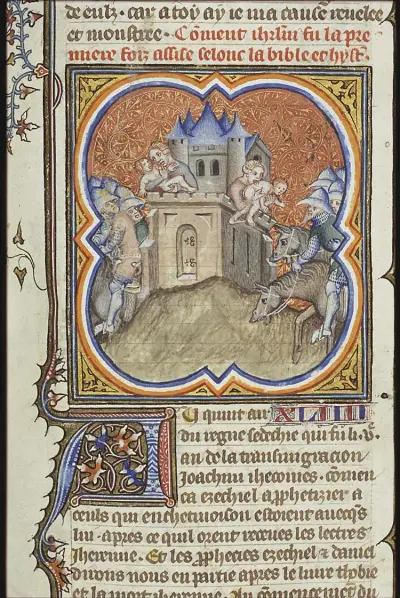 de eulz. car a toy ay ie ma cause reuelee
et monstree. Coment ihrlm fu la pre
miere foiz assise selonc la bible et hyst.
quint an XLIIII
du regne sedechie qui fu le .v.
an de la transmigracion
Joachim iheconies. comen
ca ezechiel a prophetizier a
ceuls qui en chetiuoison estoient auecqs
lui. apres ce quil orent receues les lectres
iheremie. Et les prophecies ezechiel et daniel
dirons nous en partie apres le liure thobie
et la mort iheremie. Au comencement du